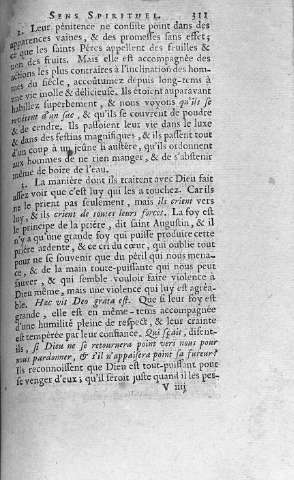 SENS SPIRITUEL. 311
2. Leur pénitence ne consiste point dans des
apparences vaines, & des promesses sans effet;
ce que les saints Pères appellent des feuilles &
non des fruits. Mais elle est accompagnée des
actions les plus contraires à l'inclination des hom-
mes du siécle, accoûtumez depuis long-tems à
une vie molle & délicieuse. Ils étoient auparavant
habillez superbement, & nous voyons qu'ils se
revêtent d'un sac, & qu'ils se couvrent de poudre
& de cendre. Ils passoient leur vie dans le luxe
& dans des festins magnifiques, & ils passent tout
d'un coup à un jeûne si austère, qu'ils ordonnent
aux hommes de ne rien manger, & de s'abstenir
même de boire de l'eau.
3. La maniére dont ils traitent avec Dieu fait
assez voir que c'est luy qui les a touchez. Car ils
ne le prient pas seulement, mais ils crient vers
luy, & ils crient de toutes leurs forces. La foy est
le principe de la prière, dit saint Augustin, & il
n'y a qu'une grande foy qui puisse produire cette
prière ardente, & ce cri du cœur, qui oublie tout
pour ne se souvenir que du péril qui nous mena-
ce, & de la main toute-puissante qui nous peut
sauver, & qui semble vouloir faire violence à
Dieu même, mais une violence qui luy est agréa-
ble. Hæc vis Deo grata est. Que si leur foy est
grande, elle est en même-tems accompagnée
d'une humilité pleine de respect, & leur crainte
est tempérée par leur confiance. Qui sçait, disent-
ils, si Dieu ne se retournera point vers nous pour
nous pardonner, & s'il n'appaisera point sa fureur?
Ils reconnoissent que Dieu est tout-puissant pour
se venger d'eux; qu'il seroit juste quand il les per-
V iiij